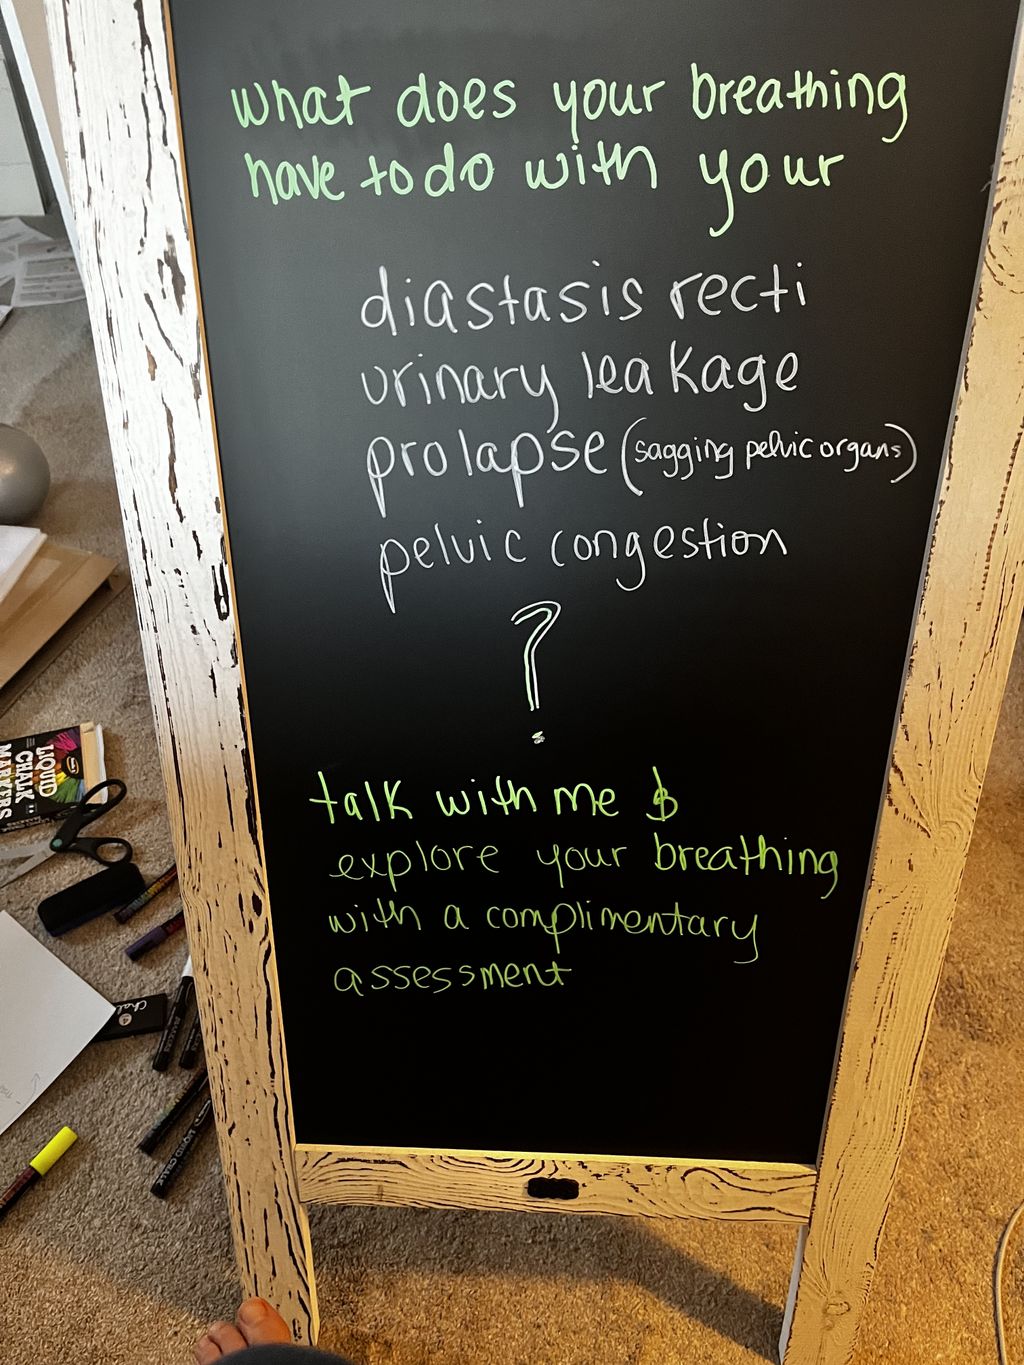 what does your breathing
have to do with your
diastasis recti
urinary leakage
prolapse (sagging pelvic organs)
pelvic congestion
?
talk with me &
explore your breathing
with a complimentary
assessment
LIQUID
CHALK
MARKERS
Chalk
LIQUID CHALK